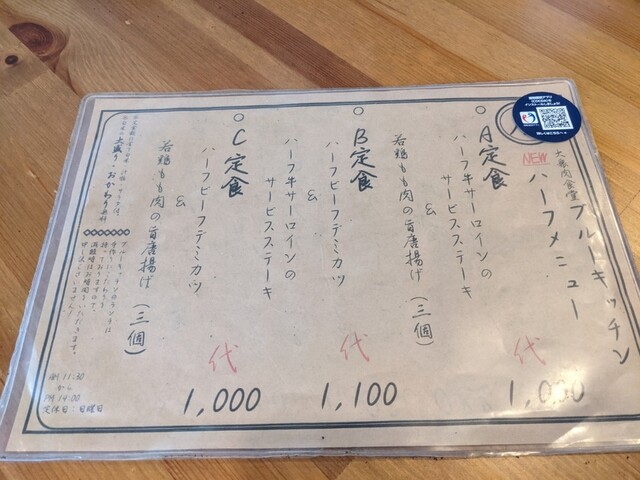 大衆肉食堂
ブルーキッチン
NEW
ハーフメニュー
A定食
ハーフ牛サーロインの
サービスステーキ
&
若鶏もも肉の旨唐揚げ（三個）
代
1,000
B定食
ハーフビーフデミカツ
&
ハーフ牛サーロインの
サービスステーキ
代
1,100
C定食
ハーフビーフデミカツ
&
若鶏もも肉の旨唐揚げ（三個）
代
1,000
大盛り・おかわり無料
AM 11:30
から
PM 14:00
定休日：日曜日